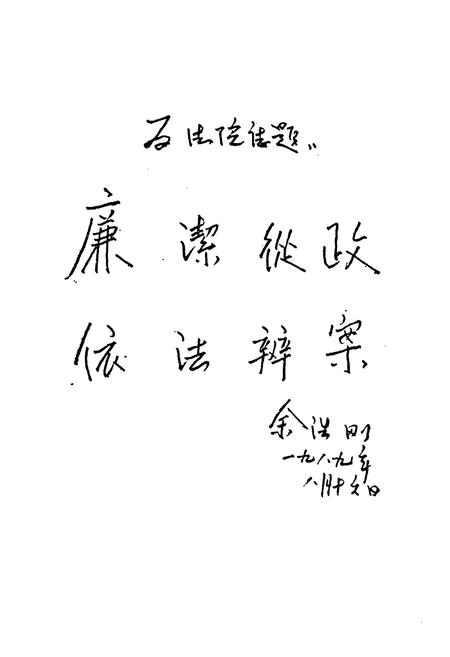 为法院志题：
廉潔從政
依法辦案
余浩刚
一九八九年
八月十六日